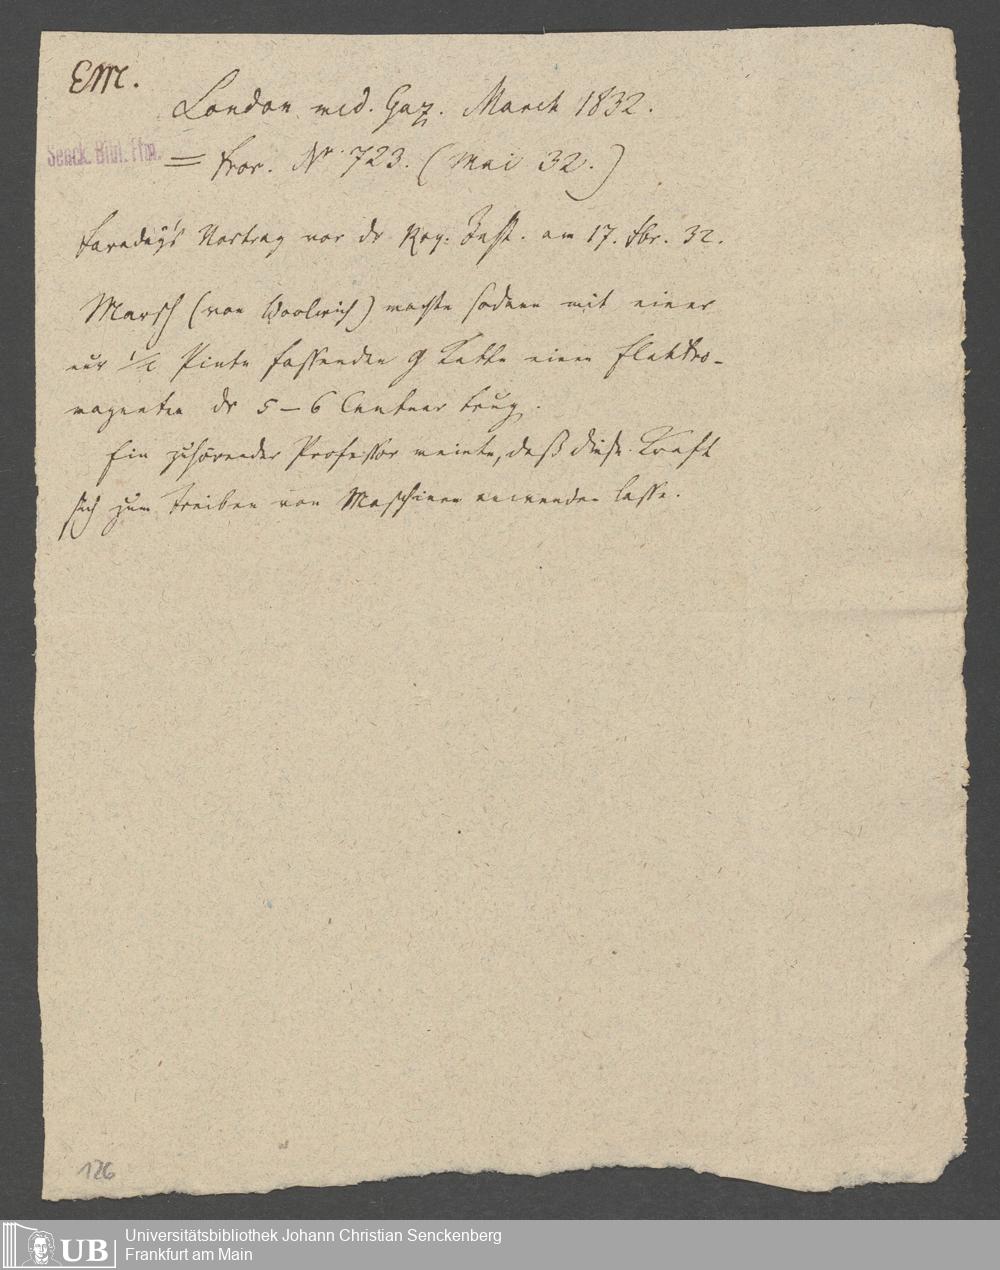 EM.
London med. Gaz. March 1832.
Senck. Bibl. Ffm.
= Fror. Nr. 723. (Mai 32.)
Faraday's Vortrag vor dr Roy. Inst. am 17. Fbr. 32.
Marsh (von Woolwich) machte sodann mit einer
nur 1/2 Pinte fassenden g Kette einen Elektro-
magneten dr 5 – 6 Centner trug.
Ein zuhörender Professor meinte, daß diese Kraft
sich zum Treiben von Maschinen anwenden lasse.
126
UB
Universitätsbibliothek Johann Christian Senckenberg
Frankfurt am Main